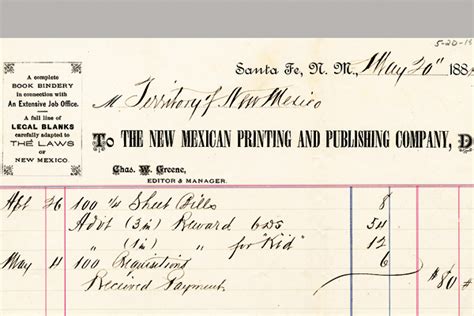 5-20-18
Santa Fe, N. M., May 20" 188
A complete
BOOK BINDERY
in connection with
An Extensive Job Office.
A full line of
LEGAL BLANKS
carefully adapted to
THE LAWS
OF
NEW MEXICO.
M Territory of New Mexico
To THE NEW MEXICAN PRINTING AND PUBLISHING COMPANY, D
Chas. W. Greene,
EDITOR & MANAGER.
Apl 26 100 1/4 Sheet Bills 8
Advt (3 in) Reward 6 DS 54
" (1 in) " for "Kid" 12
May 4 100 Requisitions 6 $80
Received Payment